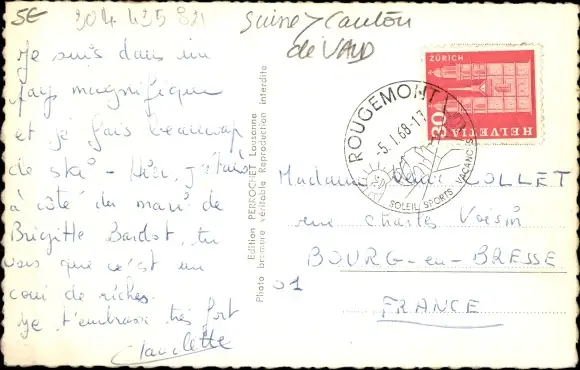 5E
304 435 821
Suisse > Canton
de VAUD
Je suis dans un
pays magnifique
et je fais beaucoup
de ski - Hier, j'étais
à côté du mari de
Brigitte Bardot, tu
vois que c'est un
coin de riches.
Je t'embrasse très fort
Claudette
Edition PERROCHET Lausanne
Photo bromure véritable Reproduction interdite
ZÜRICH
30
HELVETIA
ROUGEMONT
-5.1.68-17
SOLEIL SPORTS VACANCES
Madame COLLET
rue Charles Voisin
BOURG-en-BRESSE
01
FRANCE